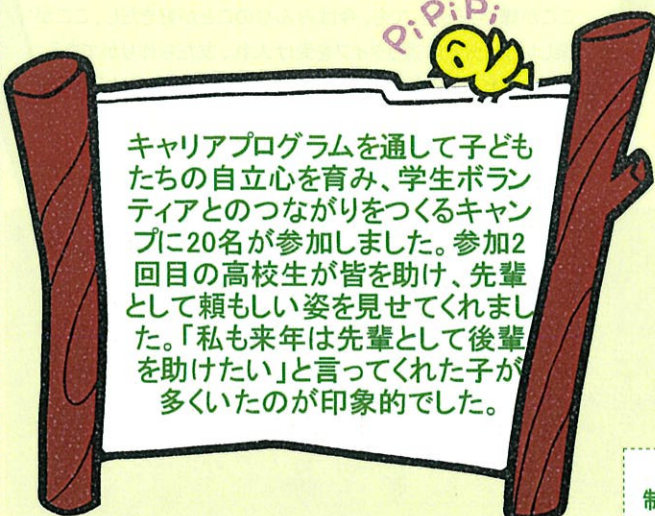 PiPiPi
キャリアプログラムを通して子ども
たちの自立心を育み、学生ボラン
ティアとのつながりをつくるキャン
プに20名が参加しました。参加2
回目の高校生が皆を助け、先輩
として頼もしい姿を見せてくれまし
た。「私も来年は先輩として後輩
を助けたい」と言ってくれた子が
多くいたのが印象的でした。
制